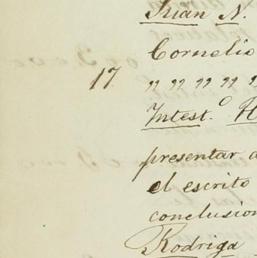 Juan N.
Cornelio
17. " " " " "
Intest.º H
presentar a
el escrito
conclusion
Rodriga